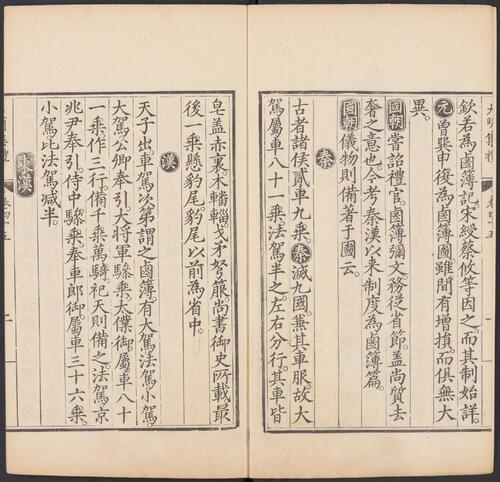 欽若為鹵簿記宋綬蔡攸等因之而其制始詳
元曾巽申復為鹵簿圖雖間有增損而俱無大
異
國朝嘗詔禮官鹵簿彌文務從省節蓋尚質去
奢之意也今考秦漢以來制度為鹵簿篇
國朝儀物則備著于圖云
秦
古者諸侯貳車九乘秦滅九國兼其車服故大
駕屬車八十一乘法駕半之左右分行其車皆
皂蓋赤裏木轓戈矛弩箙尚書御史所載最
後一乘懸豹尾豹尾以前為省中
漢
天子出車駕次第謂之鹵簿有大駕法駕小駕
大駕公卿奉引大將軍驂乘太僕御屬車八十
一乘作三行備千乘萬騎祀天則備之法駕京
兆尹奉引侍中驂乘奉車郎御屬車三十六乘
小駕比法駕減半
東漢